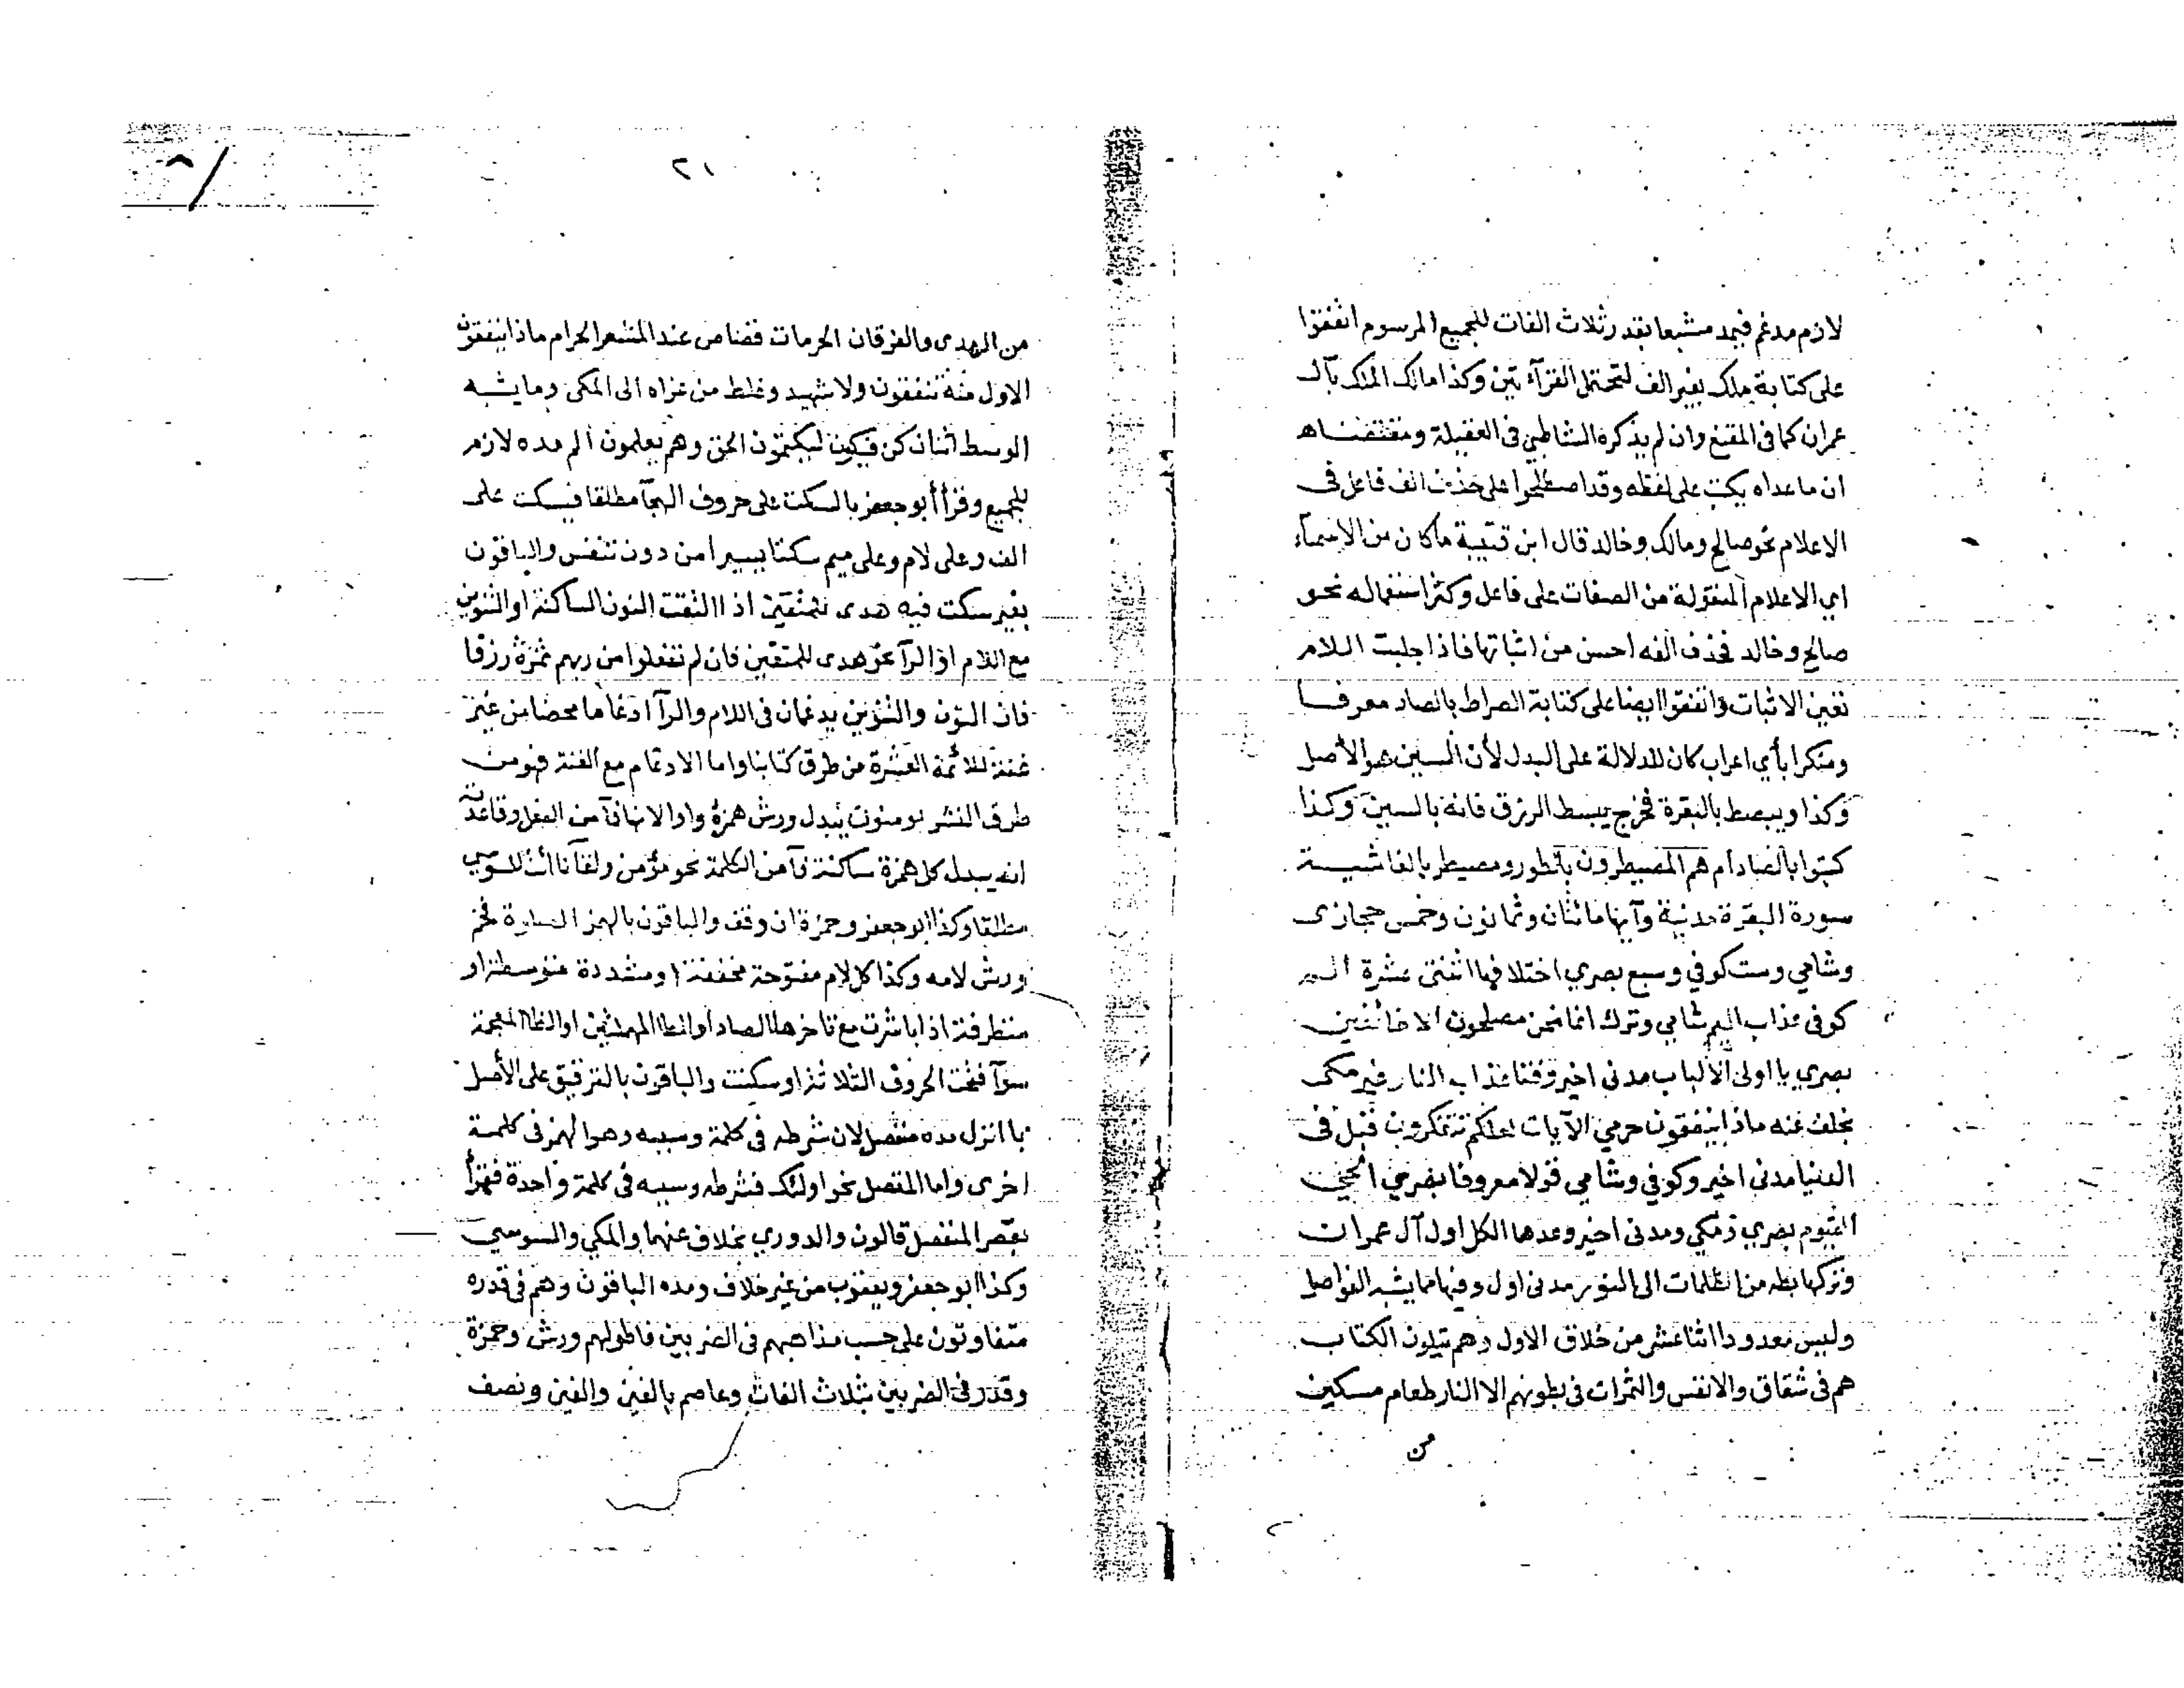 لازم مدغم فيمد مشبعا بقدر ثلاث الفات للجميع المرسوم اتفقوا
على كتابة ملك بغير الف لتحتمل القرآءتين وكذا مالك الملك بآل
عمران كما فى المقنع وان لم يذكره الشاطبي فى العقيلة ومقتضاه
ان ماعداه يكتب على لفظه وقد اصطلحوا على حذف الف فاعل فى
الاعلام نحو صالح ومالك وخالد قال ابن قتيبة ماكان من الاسمآء
اى الاعلام المنقولة من الصفات على فاعل وكثر استعماله نحو
صالح وخالد فحذف الفه احسن من اثباتها فاذا جلبت اللام
تعين الاثبات واتفقوا ايضا على كتابة الصراط بالصاد معرفا
ومنكرا بأي اعراب كان للدلالة على البدل لأن السين هو الأصل
وكذا ويبصط بالبقرة فخرج يبسط الرزق فانه بالسين وكذا
كتبوا بالصاد ام هم المصيطرون بالطور ومصيطر بالغاشية
سورة البقرة مدنية وآيها مائتان وثمانون وخمس حجازى
وشامي وست كوفي وسبع بصري اختلافها اثنتى عشرة الم
كوفى عذاب اليم شامي وترك انما نحن مصلحون الا خائفين
بصري يا اولى الألباب مدنى اخير وقنا عذاب النار غير مكى
بخلف عنه ماذا ينفقون حرمي الآيات لعلكم تتفكرون قبل فى
الدنيا مدنى اخير وكوفي وشامي قولا معروفا بصرى الحي
القيوم بصري ومكي ومدنى اخير وعدها الكل اول آل عمران
وتركها بطه من الظلمات الى النور مدنى اول وفيها مما يشبه الفواصل
وليس معدودا اثنا عشر من خلاق الاول وهم يتلون الكتاب
هم فى شقاق والانفس والثمرات فى بطونهم الا النار طعام مسكين
من
٢١
من الهدى والفرقان الحرمات قصاص عند المشعر الحرام ماذا ينفقون
الاول منه تنفقون ولا شهيد وغلط من عزاه الى المكى وما يشبه
الوسط اثنان كن فيكون ليكتمون الحق وهم يعلمون الم مده لازم
للجميع وقرأ أبو جعفر بالسكت على حروف الهجآ مطلقا فيسكت على
الف وعلى لام وعلى ميم سكتا يسيرا من دون تنفس والباقون
بغير سكت فيه هدى للمتقين اذا التقت النون الساكنة او التنوين
مع اللام او الرآ نحو هدى للمتقين فان لم تفعلوا من ربهم ثمرة رزقا
فان النون والتنوين يدغمان فى اللام والرآ ادغاما محضا من غير
غنة للائمة العشرة من طرق كتابنا واما الادغام مع الغنة فهو من
طرق النشر يومنون يبدل ورش همزه واوا لانها فآ من الفعل وقاعدته
انه يبدل كل همزة ساكنة فآ من الكلمة نحو مؤمن ولقآنا ائت للسوسي
مطلقا وكذا ابو جعفر وحمزة ان وقف والباقون بالهمز الصلوة فخم
ورش لامه وكذا كل لام مفتوحة مخففة او مشددة متوسطة او
متطرفة اذا باشرت مع تاخرها الصاد او الطا المهملتين او الظا المعجمة
سوآ فتحت الحروف الثلاثة او سكنت والباقون بالترقيق على الأصل
بما انزل مده منفصل لان شرطه فى كلمة وسببه وهو الهمز فى كلمة
اخرى واما المتصل نحو اولئك فشرطه وسببه فى كلمة واحدة فقرأ
بقصر المنفصل قالون والدوري بخلاف عنهما والمكي والسوسي
وكذا ابو جعفر ويعقوب من غير خلاف ومده الباقون وهم فى قدره
متفاوتون على حسب مذاهبهم فى الضربين فاطولهم ورش وحمزة
وقدر فى الضربين بثلاث الفات وعاصم بالفين والفين ونصف